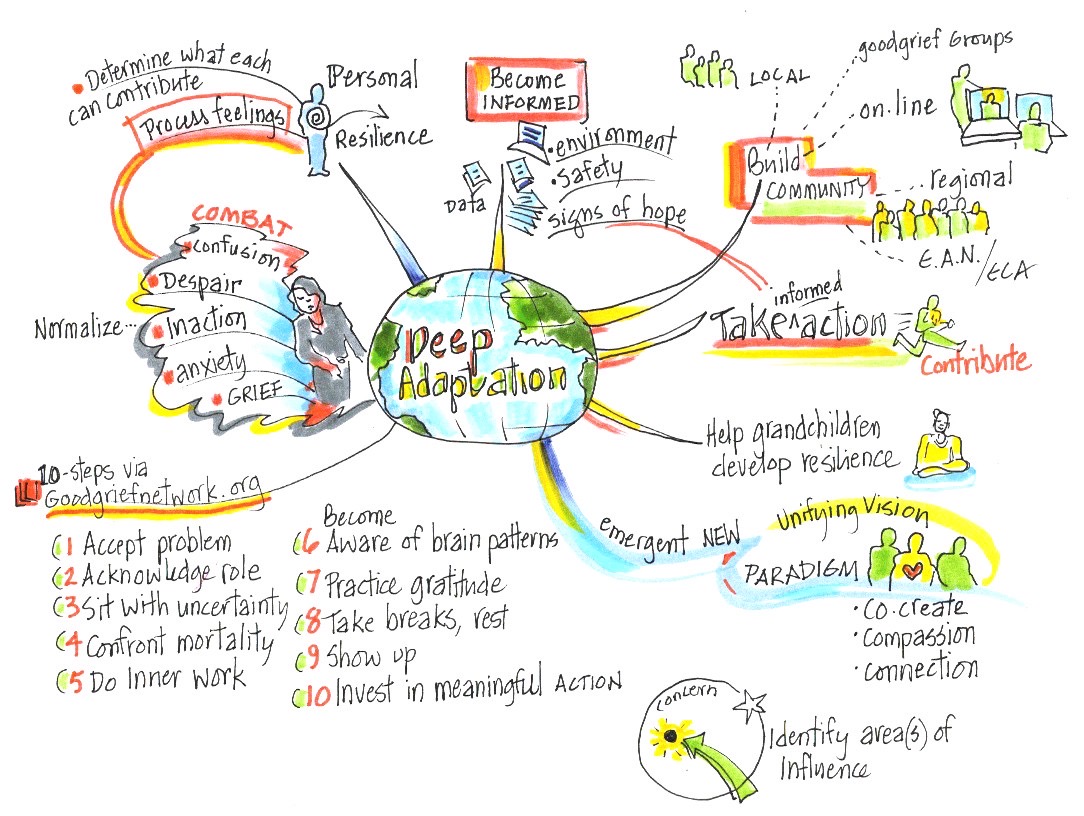 Determine what each
can contribute
Process feelings
Personal
Resilience
Become
INFORMED
environment
Safety
signs of hope
DATA
LOCAL
goodgrief Groups
on-line
Build
COMMUNITY
regional
E.A.N./ECA
informed
Take ^ action
Contribute
COMBAT
Confusion
Despair
Normalize...
Inaction
anxiety
GRIEF
Deep
Adaptation
Help grandchildren
develop resilience
emergent NEW
PARADIGM
Unifying Vision
co.create
compassion
connection
10-steps via
Goodgriefnetwork.org
1 Accept problem
2 Acknowledge role
3 Sit with uncertainty
4 Confront mortality
5 Do Inner work
Become
6 Aware of brain patterns
7 Practice gratitude
8 Take breaks, rest
9 Show up
10 Invest in meaningful ACTION
concern
Identify area(s) of
Influence